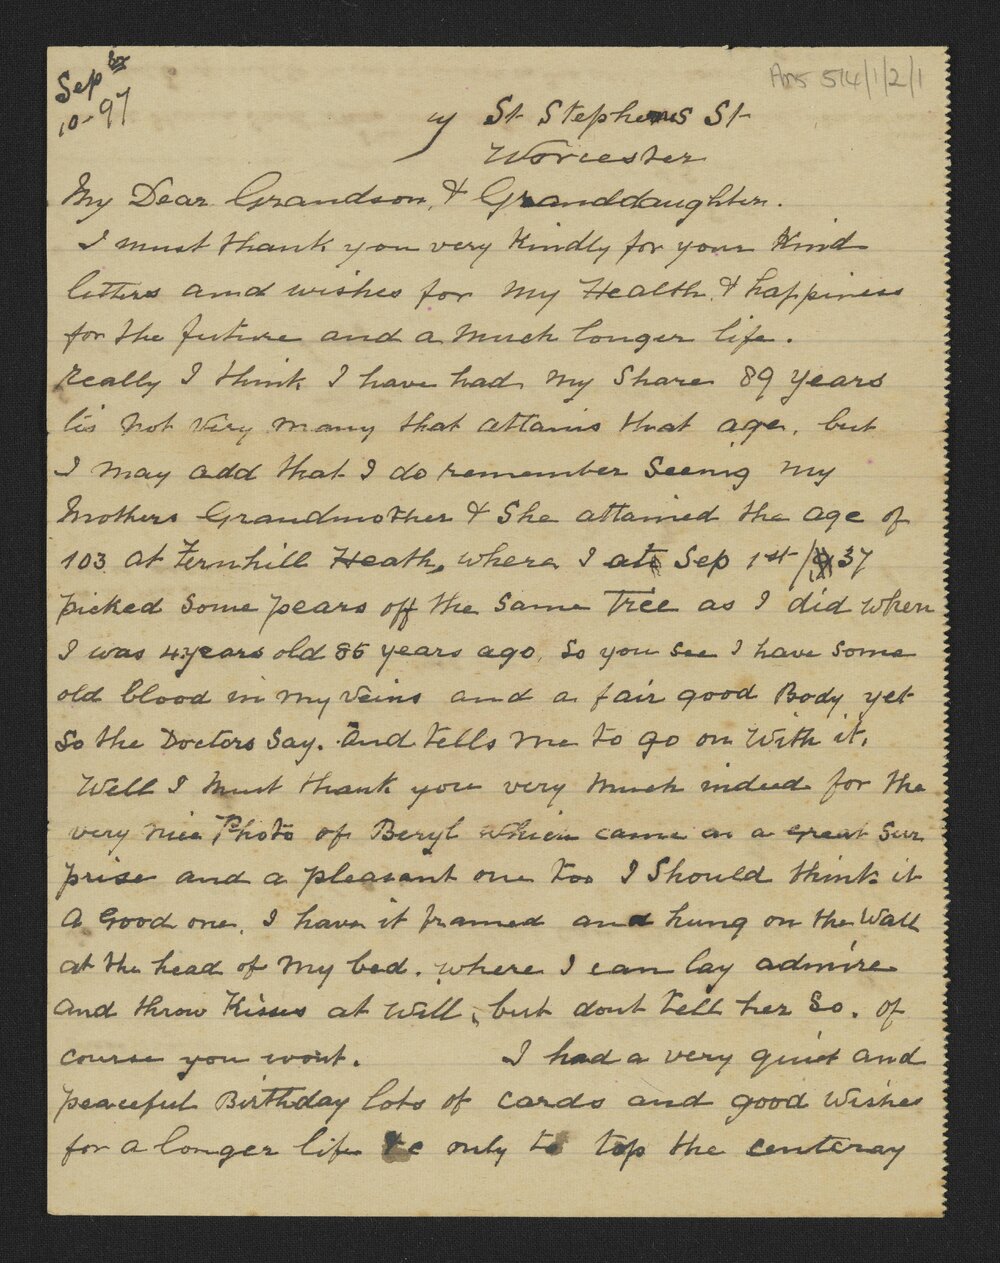 Sep br
10-97
Ams 514/1/2/1
y St Stephens St
Worcester
My Dear Grandson, & Granddaughter.
I must thank you very Kindly for your Kind
letters and wishes for my Health & happiness
for the future and a much longer life.
really I think I have had my share 89 years
tis not very many that attains that age, but
I may add that I do remember seeing my
Mothers Grandmother & She attained the age of
103 at Fernhill Heath, where I at Sep 1st/37
picked some pears off the same Tree as I did when
I was 4 years old 85 years ago, so you see I have some
old blood in my veins and a fair good Body yet
So the Doctors Say. And tells me to go on With it.
Well I must thank you very much indeed for the
very nice Photo of Beryl which came as a great Sur
prise and a pleasant one too I Should think it
A Good one, I have it framed and hung on the Wall
at the head of my bed. where I can lay admire
and throw Kisses at Will, but dont tell her So. of
course you wont. I had a very quiet and
peaceful Birthday lots of cards and good Wishes
for a longer life &c only to top the centeray